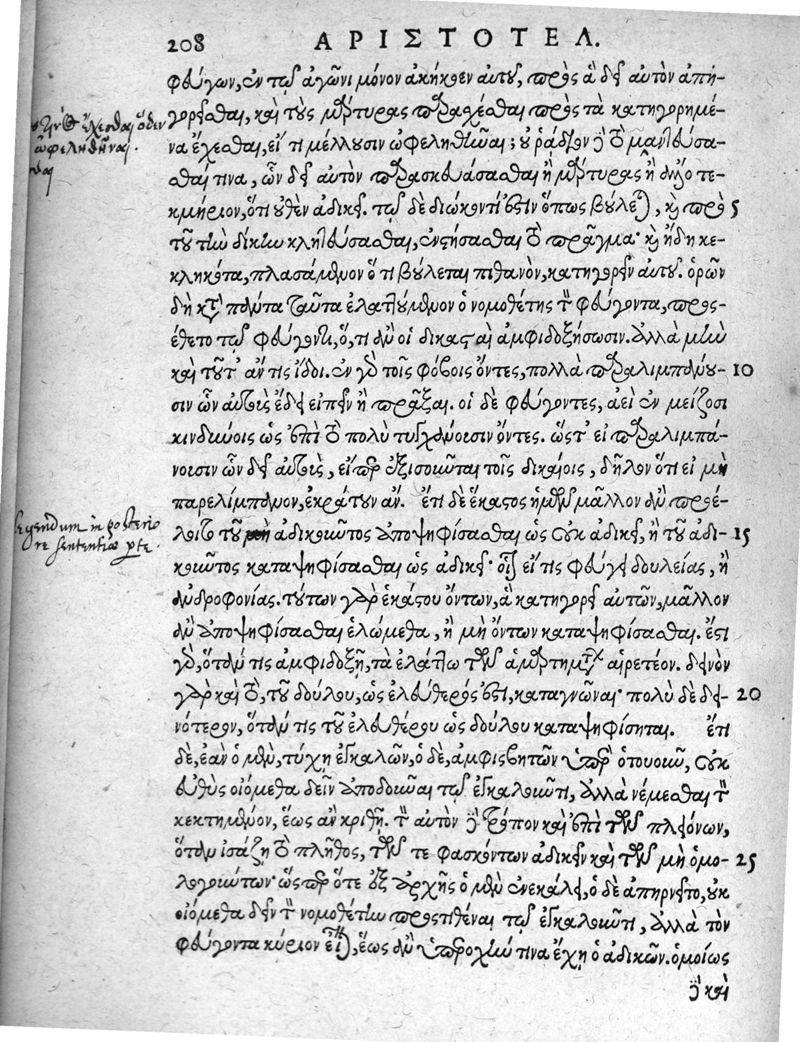 208 ΑΡΙΣΤΟΤΕΛ.
φεύγων, ἐν τῷ ἀγῶνι μόνον ἀκήκοεν αὐτοῦ, πρὸς ἃ δεῖ αὐτὸν ἀπη-
γορεῖσθαι, καὶ τοὺς μάρτυρας παρασχέσθαι πρὸς τὰ κατηγορημέ-
να ἔχεσθαι, εἴ τι μέλλουσιν ὠφεληθῆναι; οὐ ῥάδιον δὲ τὸ μαντεύσα-
σθαί τινα, ὧν δεῖ αὐτὸν παρασκευάσασθαι ἢ μάρτυρας ἢ ἄλλο τε-
κμήριον, ὅτι οὐθὲν ἀδικεῖ. τῷ δὲ διώκοντί ἐστιν ὅπως βούλεται, καὶ πρὸ 5
τοῦ τὴν δίκην κλητεύσασθαι, ἐνστήσασθαι τὸ πρᾶγμα· καὶ ἤδη κε-
κληκότα, πλασάμενον ὅ τι βούλεται πιθανὸν, κατηγορεῖν αὐτοῦ. ὁρῶν
δὴ κατὰ πάντα ταῦτα ἐλαττούμενον ὁ νομοθέτης τὸν φεύγοντα, προς-
έθετο τῷ φεύγοντι, ὅ, τι ἂν οἱ δικασταὶ ἀμφιδοξήσωσιν. ἀλλὰ μὴν
καὶ τοῦτ' ἄν τις ἴδοι. ἐν γὰρ τοῖς φόβοις ὄντες, πολλὰ παραλιμπάνου- 10
σιν ὧν αὐτοὺς ἔδει εἰπεῖν ἢ πρᾶξαι. οἱ δὲ φεύγοντες, ἀεὶ ἐν μείζοσι
κινδύνοις ὡς ἐπὶ τὸ πολὺ τυγχάνουσιν ὄντες. ὥστ' εἰ παραλιμπά-
νουσιν ὧν δεῖ αὐτοὺς, εἴπερ ἐξισοῦνται τοῖς δικαίοις, δῆλον ὅτι εἰ μὴ
παρελίμπανον, ἐκράτουν ἄν. ἔτι δὲ ἕκαστος ἡμῶν μᾶλλον ἂν προέ-
λοιτο τοῦ μὴ ἀδικοῦντος ἀποψηφίσασθαι ὡς οὐκ ἀδικεῖ, ἢ τοῦ ἀδι- 15
legendum in posterio
re sententiæ pte.
κοῦντος καταψηφίσασθαι ὡς ἀδικεῖ· οἷον εἴ τις φεύγει δουλείας, ἢ
ἀνδροφονίας. τούτων γὰρ ἑκάστου ὄντων, ἃ κατηγορεῖ αὐτῶν, μᾶλλον
ἂν ἀποψηφίσασθαι ἑλώμεθα, ἢ μὴ ὄντων καταψηφίσασθαι. ἔστι
γὰρ, ὅταν τις ἀμφιδοξῇ, τὰ ἐλάττω τῶν ἁμαρτημάτων αἱρετέον. δεινὸν
γὰρ καὶ τὸ, τοῦ δούλου, ὡς ἐλεύθερός ἐστι, καταγνῶναι· πολὺ δὲ δει- 20
νότερον, ὅταν τις τοῦ ἐλευθέρου ὡς δούλου καταψηφίσηται. ἔτι
δὲ, ἐὰν ὁ μὲν, τύχῃ ἐγκαλῶν, ὁ δὲ, ἀμφισβητῶν ὑπὲρ ὁτουοῦν, οὐκ
εὐθὺς οἰόμεθα δεῖν ἀποδοῦναι τῷ ἐγκαλοῦντι, ἀλλὰ νέμεσθαι τὸν
κεκτημένον, ἕως ἂν κριθῇ. τὸν αὐτὸν δὲ τρόπον καὶ ἐπὶ τῶν πλειόνων,
ὅταν ἰσάζῃ τὸ πλῆθος, τῶν τε φασκόντων ἀδικεῖν καὶ τῶν μὴ ὁμο- 25
λογούντων· ὥσπερ ὅτε ἐξ ἀρχῆς ὁ μὲν ἐνεκάλει, ὁ δὲ ἀπηρνεῖτο, οὐκ
οἰόμεθα δεῖν τὸν νομοθέτην προςτιθέναι τῷ ἐγκαλοῦντι, ἀλλὰ τὸν
φεύγοντα κύριον εἶναι, ἕως ἂν ὑπεροχήν τινα ἔχῃ ὁ ἀδικῶν. ὁμοίως
δὲ καὶ